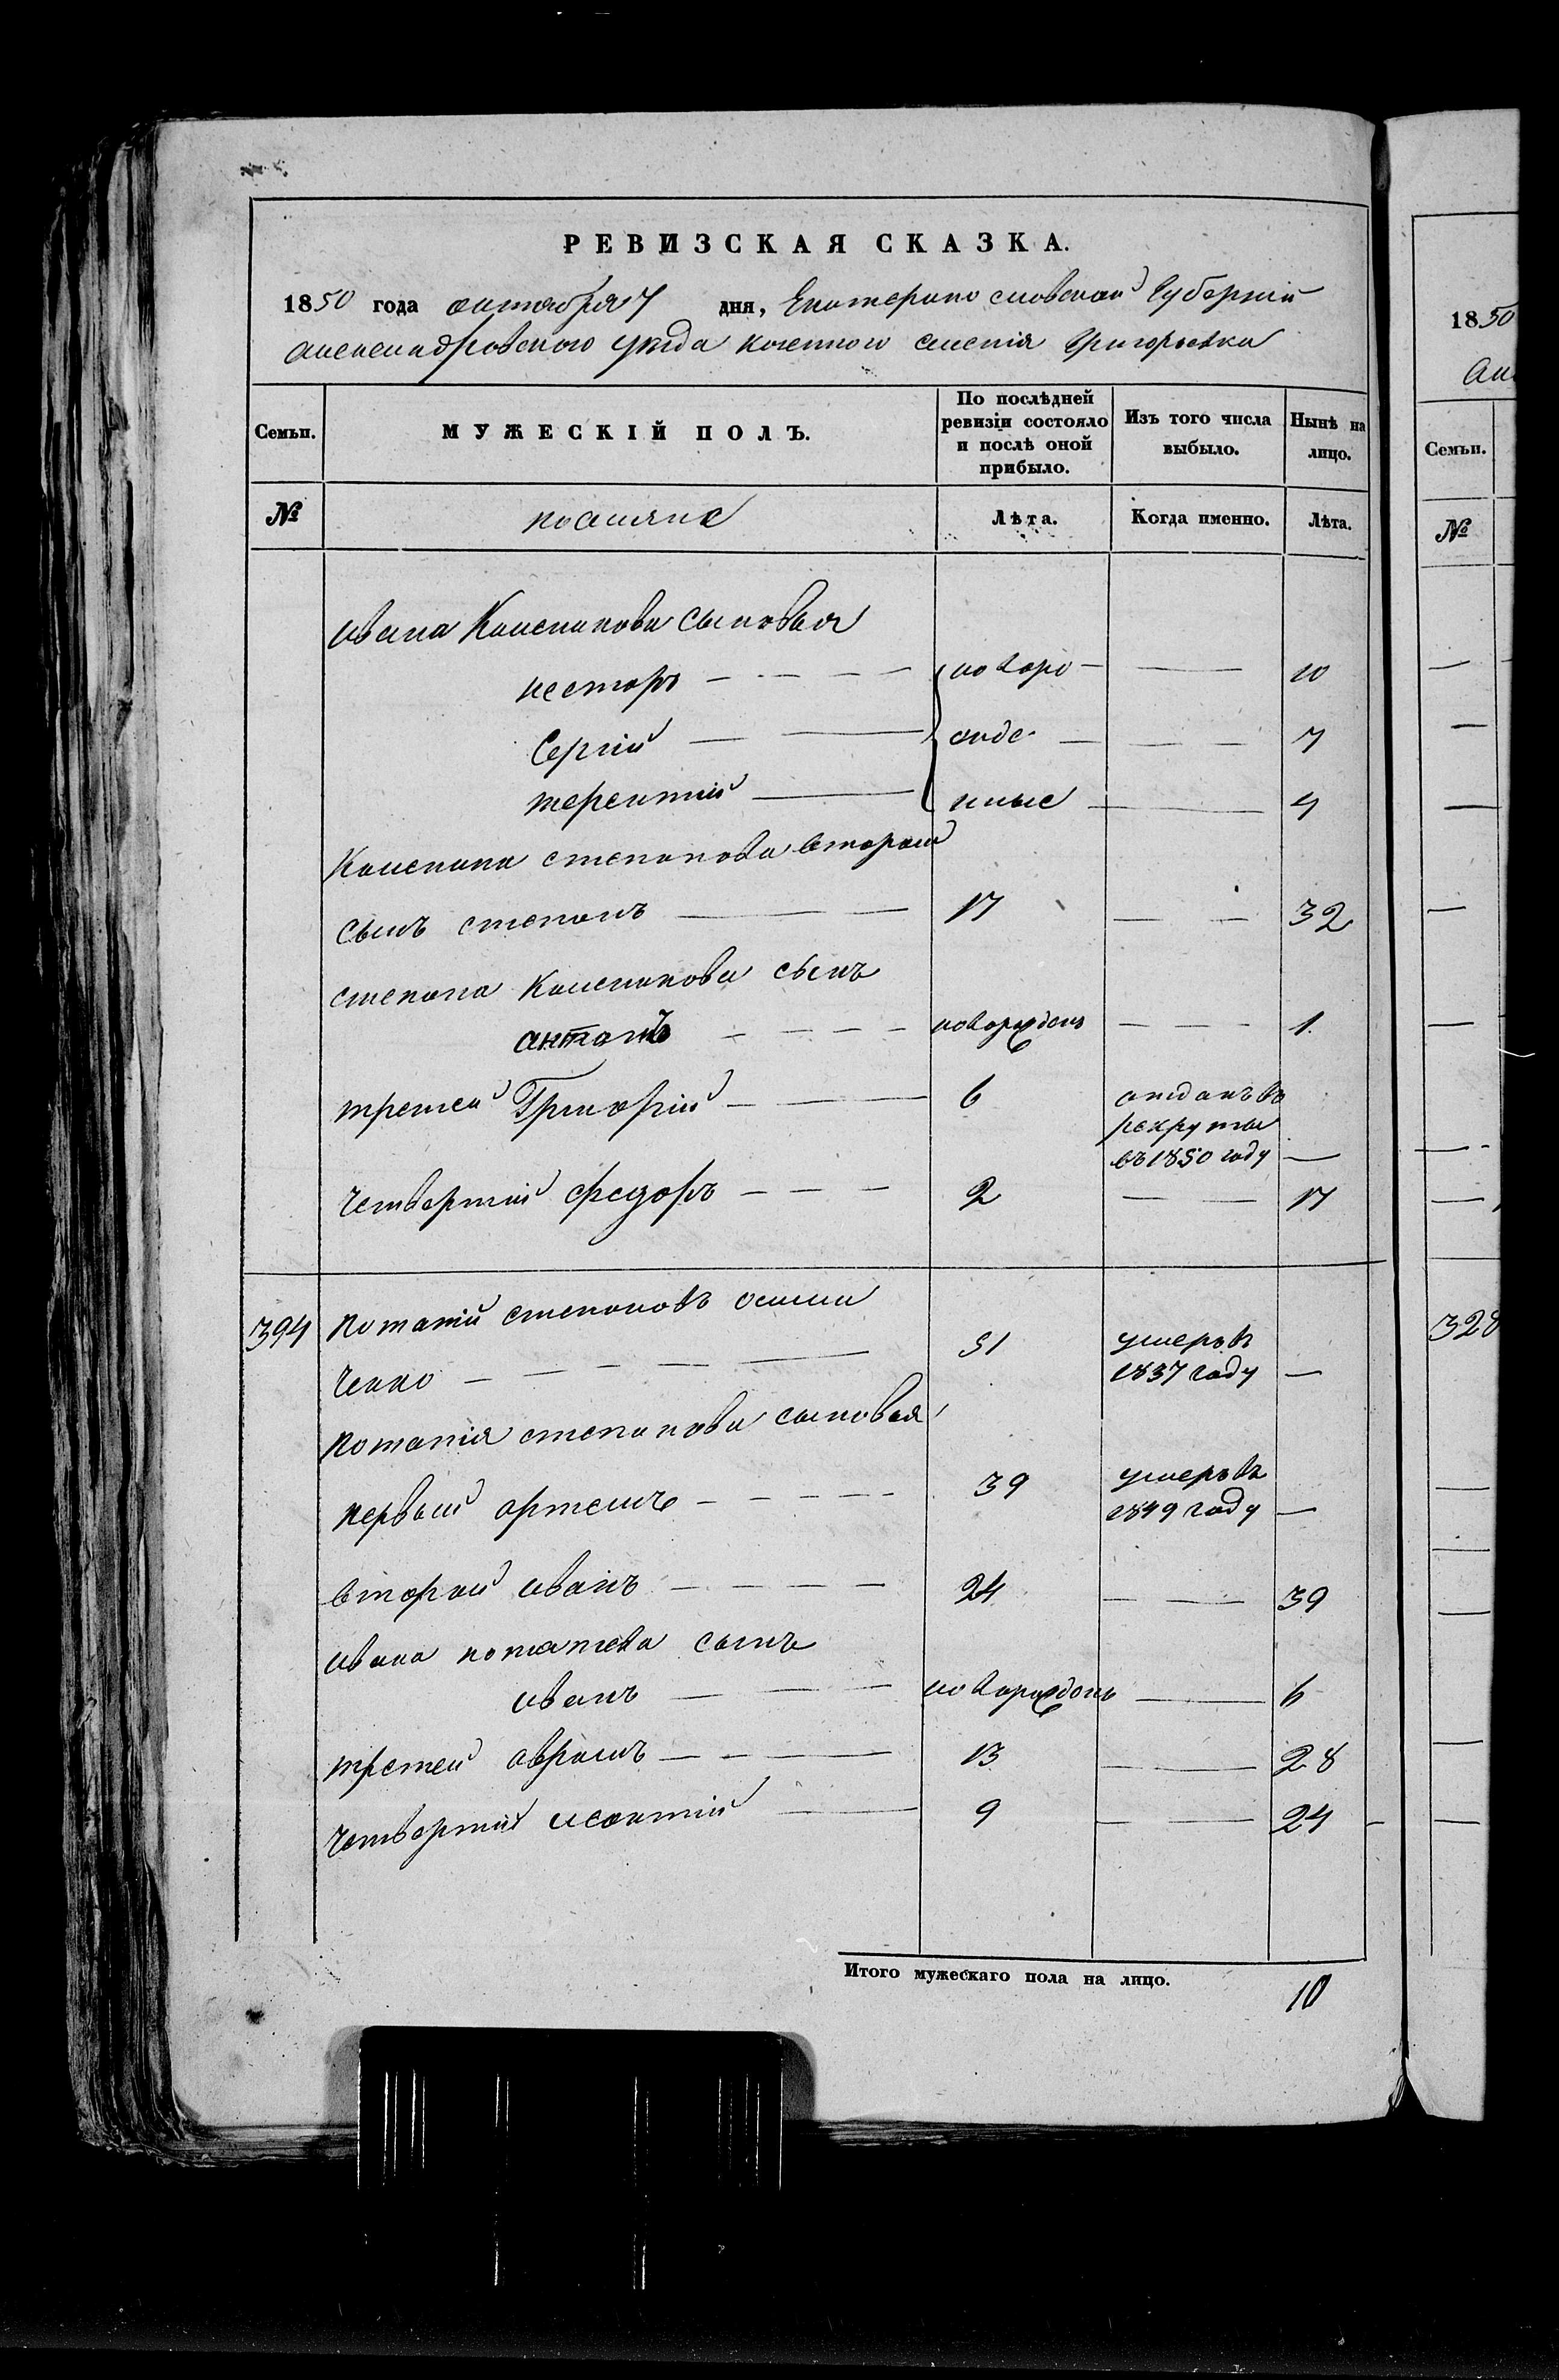 РЕВИЗСКАЯ СКАЗКА.
1850 года октября 7 дня, Екатеринославской Губернии
Александровского уезда казенного селения Григорьевка
Семьи. МУЖЕСКІЙ ПОЛЪ. По послѣдней ревизіи состояло и послѣ оной прибыло. Изъ того числа выбыло. Нынѣ на лицо.
№ поселяне Лѣта. Когда именно. Лѣта.
ивана Каленикова сыновья
несторъ новоро 10
Сергій жде 7
терентий нные 4
Каленика степанова второй
сынъ степанъ 17 32
степана Каленикова сынъ
антонъ новорожденъ 1
третей Григорій 6 отданъ въ
рекруты
въ 1850 году
четвертий федоръ 2 17
394 потапій степановъ
ченко 51 умеръ въ
1837 году
потапія степанова сыновья
первый артемъ 39 умеръ въ
1849 году
второй иванъ 24 39
ивана потапиева сынъ
иванъ новорожденъ 6
третей аврамъ 13 28
четвертий леонтий 9 24
Итого мужескаго пола на лицо. 10
1850
Семьи.
№
328